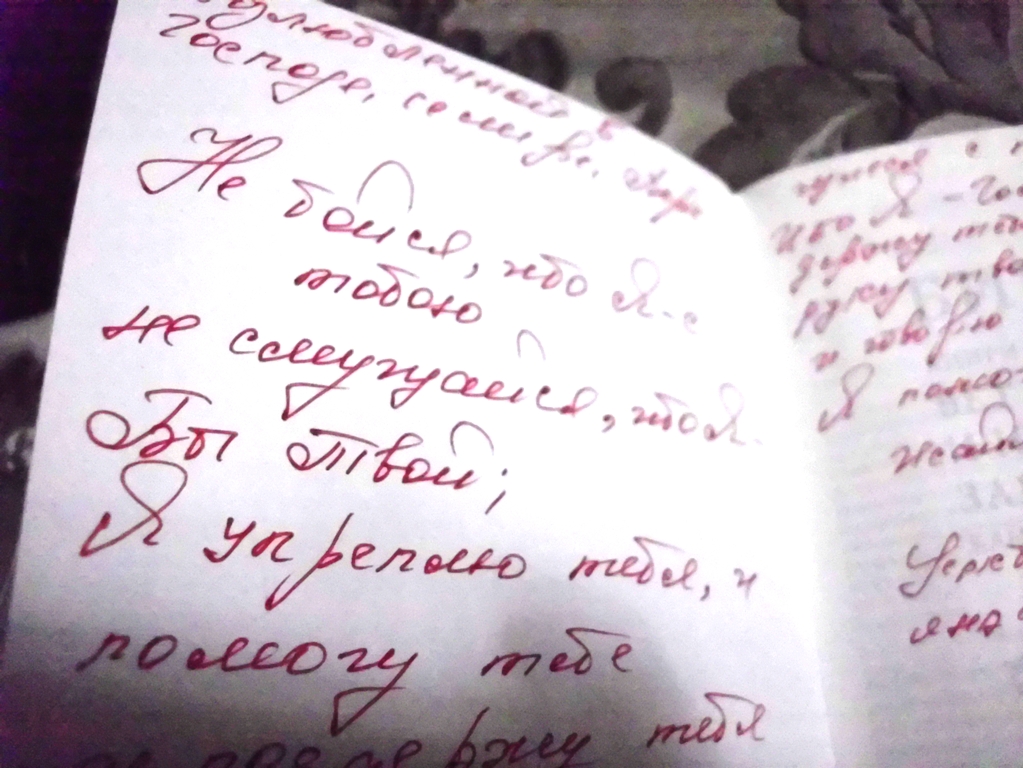 Господе, семье,
Не бойся, ибо Я - с
тобою
не смущайся, ибо Я -
Бг Твой;
Я укреплю тебя, и
помогу тебе
и поддержу тебя
ибо Я - Гос
держу
руку тво
и говорю
Я помо